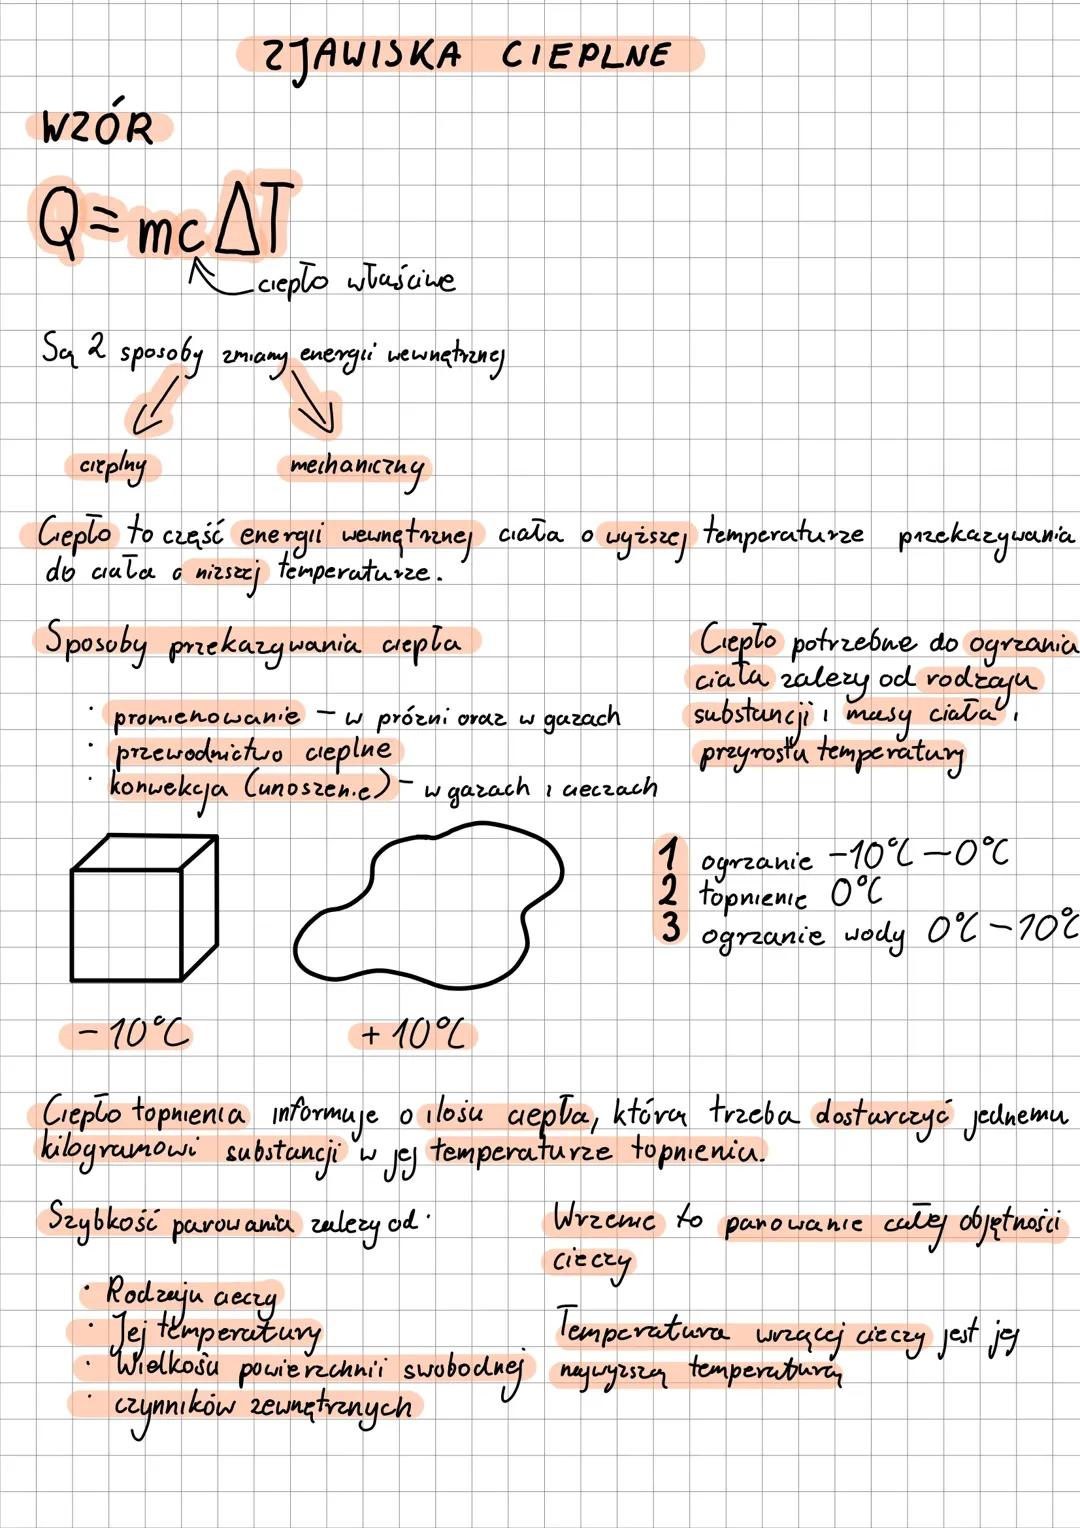 ZJAWISKA CIEPLNE
WZÓR
Q = mcΔT
ciepło właściwe
Są 2 sposoby zmiany energii wewnętrznej
cieplny
mechaniczny
Ciepło to część energii wewnętrznej ciała o wyższej temperaturze przekazywania
do ciała o niższej temperaturze.
Sposoby przekazywania ciepła
· promieniowanie – w próżni oraz w gazach
· przewodnictwo cieplne
· konwekcja (unoszenie) – w gazach i cieczach
Ciepło potrzebne do ogrzania
ciała zależy od rodzaju
substancji i masy ciała i
przyrostu temperatury
-10°C
+10°C
1 ogrzanie -10°C – 0°C
2 topnienie 0°C
3 ogrzanie wody 0°C – 10°C
Ciepło topnienia informuje o ilości ciepła, którą trzeba dostarczyć jednemu
kilogramowi substancji w jej temperaturze topnienia.
Szybkość parowania zależy od:
· Rodzaju cieczy
· Jej temperatury
· Wielkości powierzchnii swobodnej
· czynników zewnętrznych
Wrzenie to parowanie całej objętności
cieczy
Temperatura wrzącej cieczy jest jej
najwyższą temperaturą